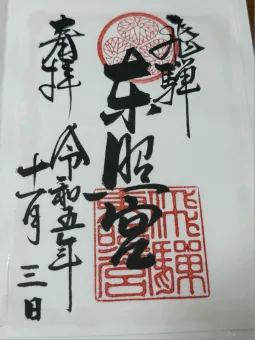 飛騨
東照宮
奉拝
令和五年
十一月三日
飛騨東照宮